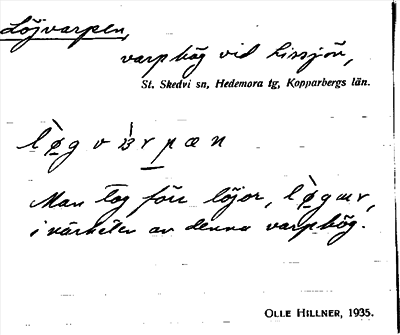 Löjvarpen,
varphög vid Lissjön,
St. Skedvi sn, Hedemora tg, Kopparbergs län.
Man tog förr löjor,
i närheten av denna varphög.
OLLE HILLNER, 1935.